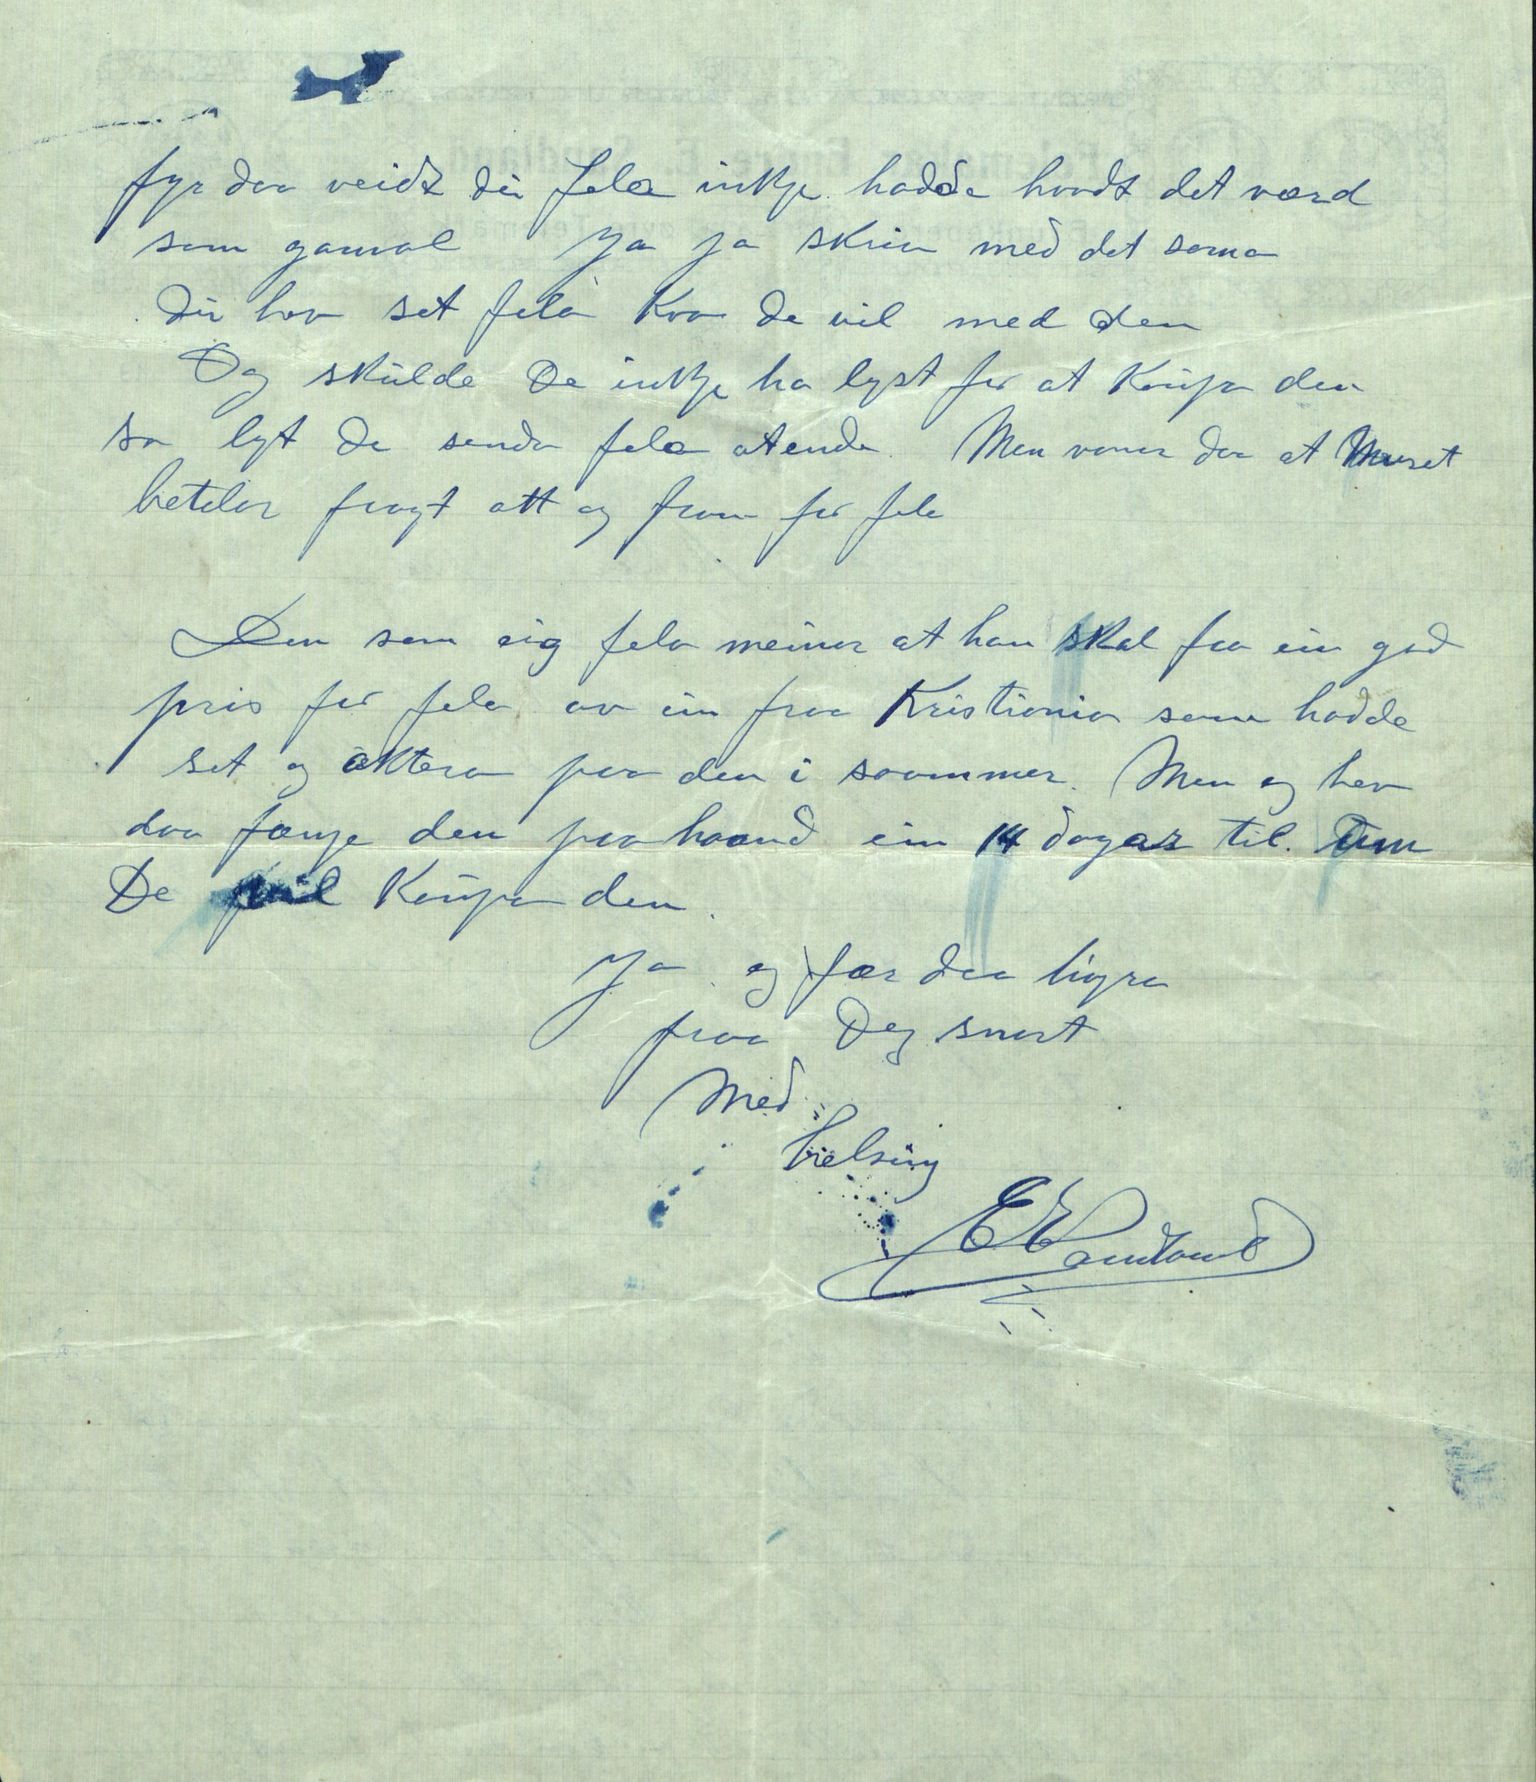 fyr daa veidt di fela inkje hadde havdt det værd
som gamal Ja ja skriv med det sama
di hev set fela kva de vil med den
Og skulde De inkje ha lyst fer at kaupa den
so lyt De senda fela atende. Men vonar daa at Muset
betalar fragt att og fram fer fela
Den som eig fela meinar at han skal faa ein god
pris fer fela av ein fraa Kristiania som hadde
set og aktera paa den i soommer. Men eg hev
daa fenge den paa haand ein 14 dagar til. Um
De vil kaupa den.
Ja eg fær daa høyra
fraa Deg snart
Med
helsing
E E Sandland